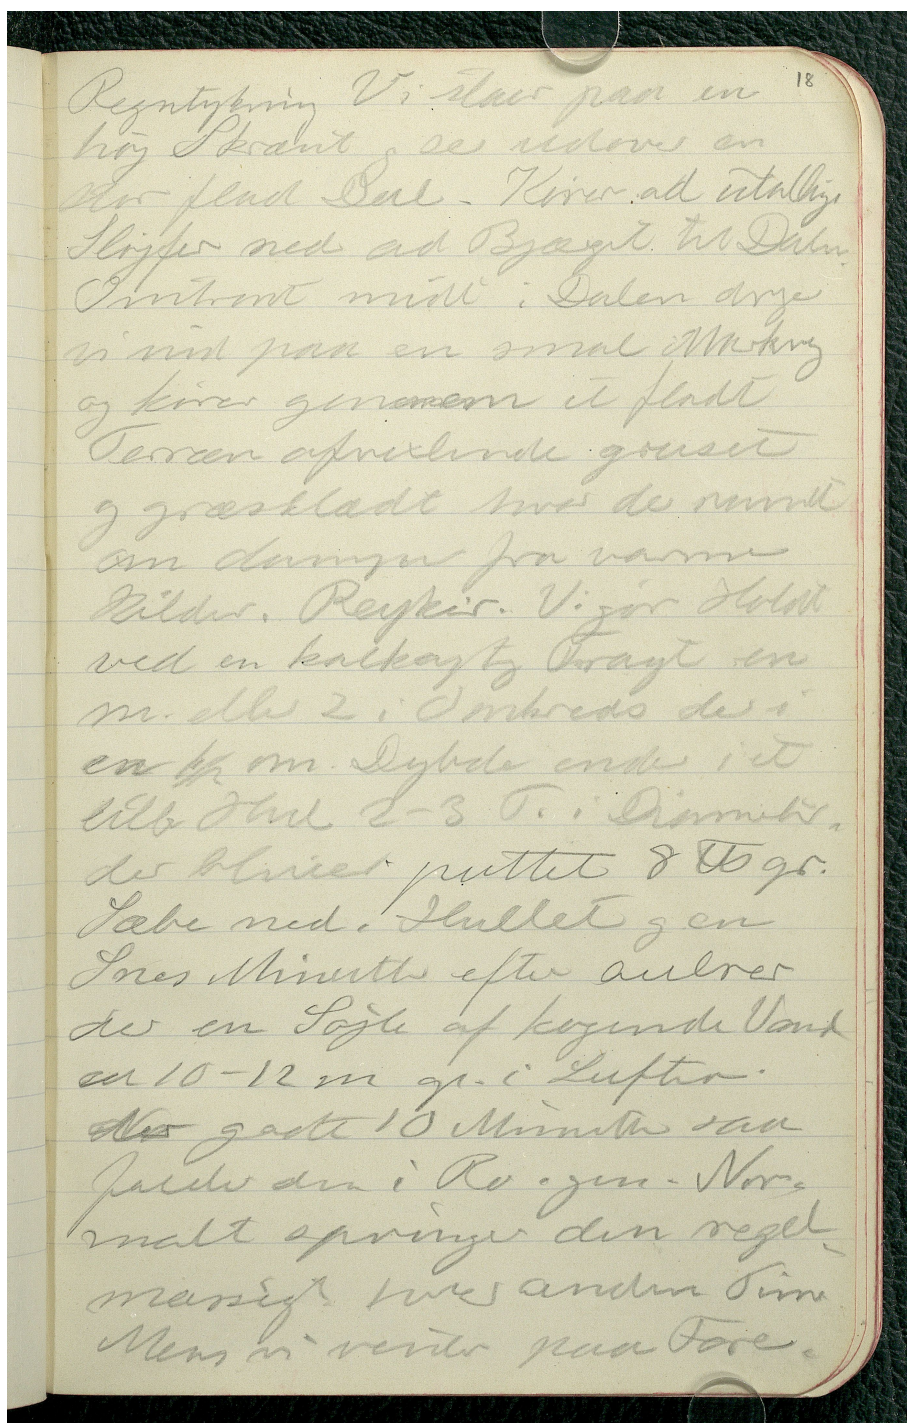 18
Regntykning Vi staar paa en
høj Skrænt, se udover en
stor flad Dal - Kører ad utallige
Sløjfer ned ad Bjæget til Dalen.
Omtrent midt i Dalen dreje
vi ind paa en smal Markvej
og kører gennem et fladt
Terræn afvexlende gruset
og græsklædt hvor de rundt
om damper fra varme
Kilder. Reykir. Vi gør Holdt
ved en kalkagtig Tragt en
m. eller 2 i Omkreds der i
en m. Dybde ender i et
lille Hul 2-3 T. i Diameter.
der bliver puttet 8 gr.
Sæbe ned i Hullet og en
Snes Minutter efter
der en Søjle af kogende Vand
10-12 m op i Luften.
godte 10 Minutter saa
falder den i Ro igen. Nor-
malt springer den regel-
mæssigt hver anden Time
Mens vi venter paa Fore-